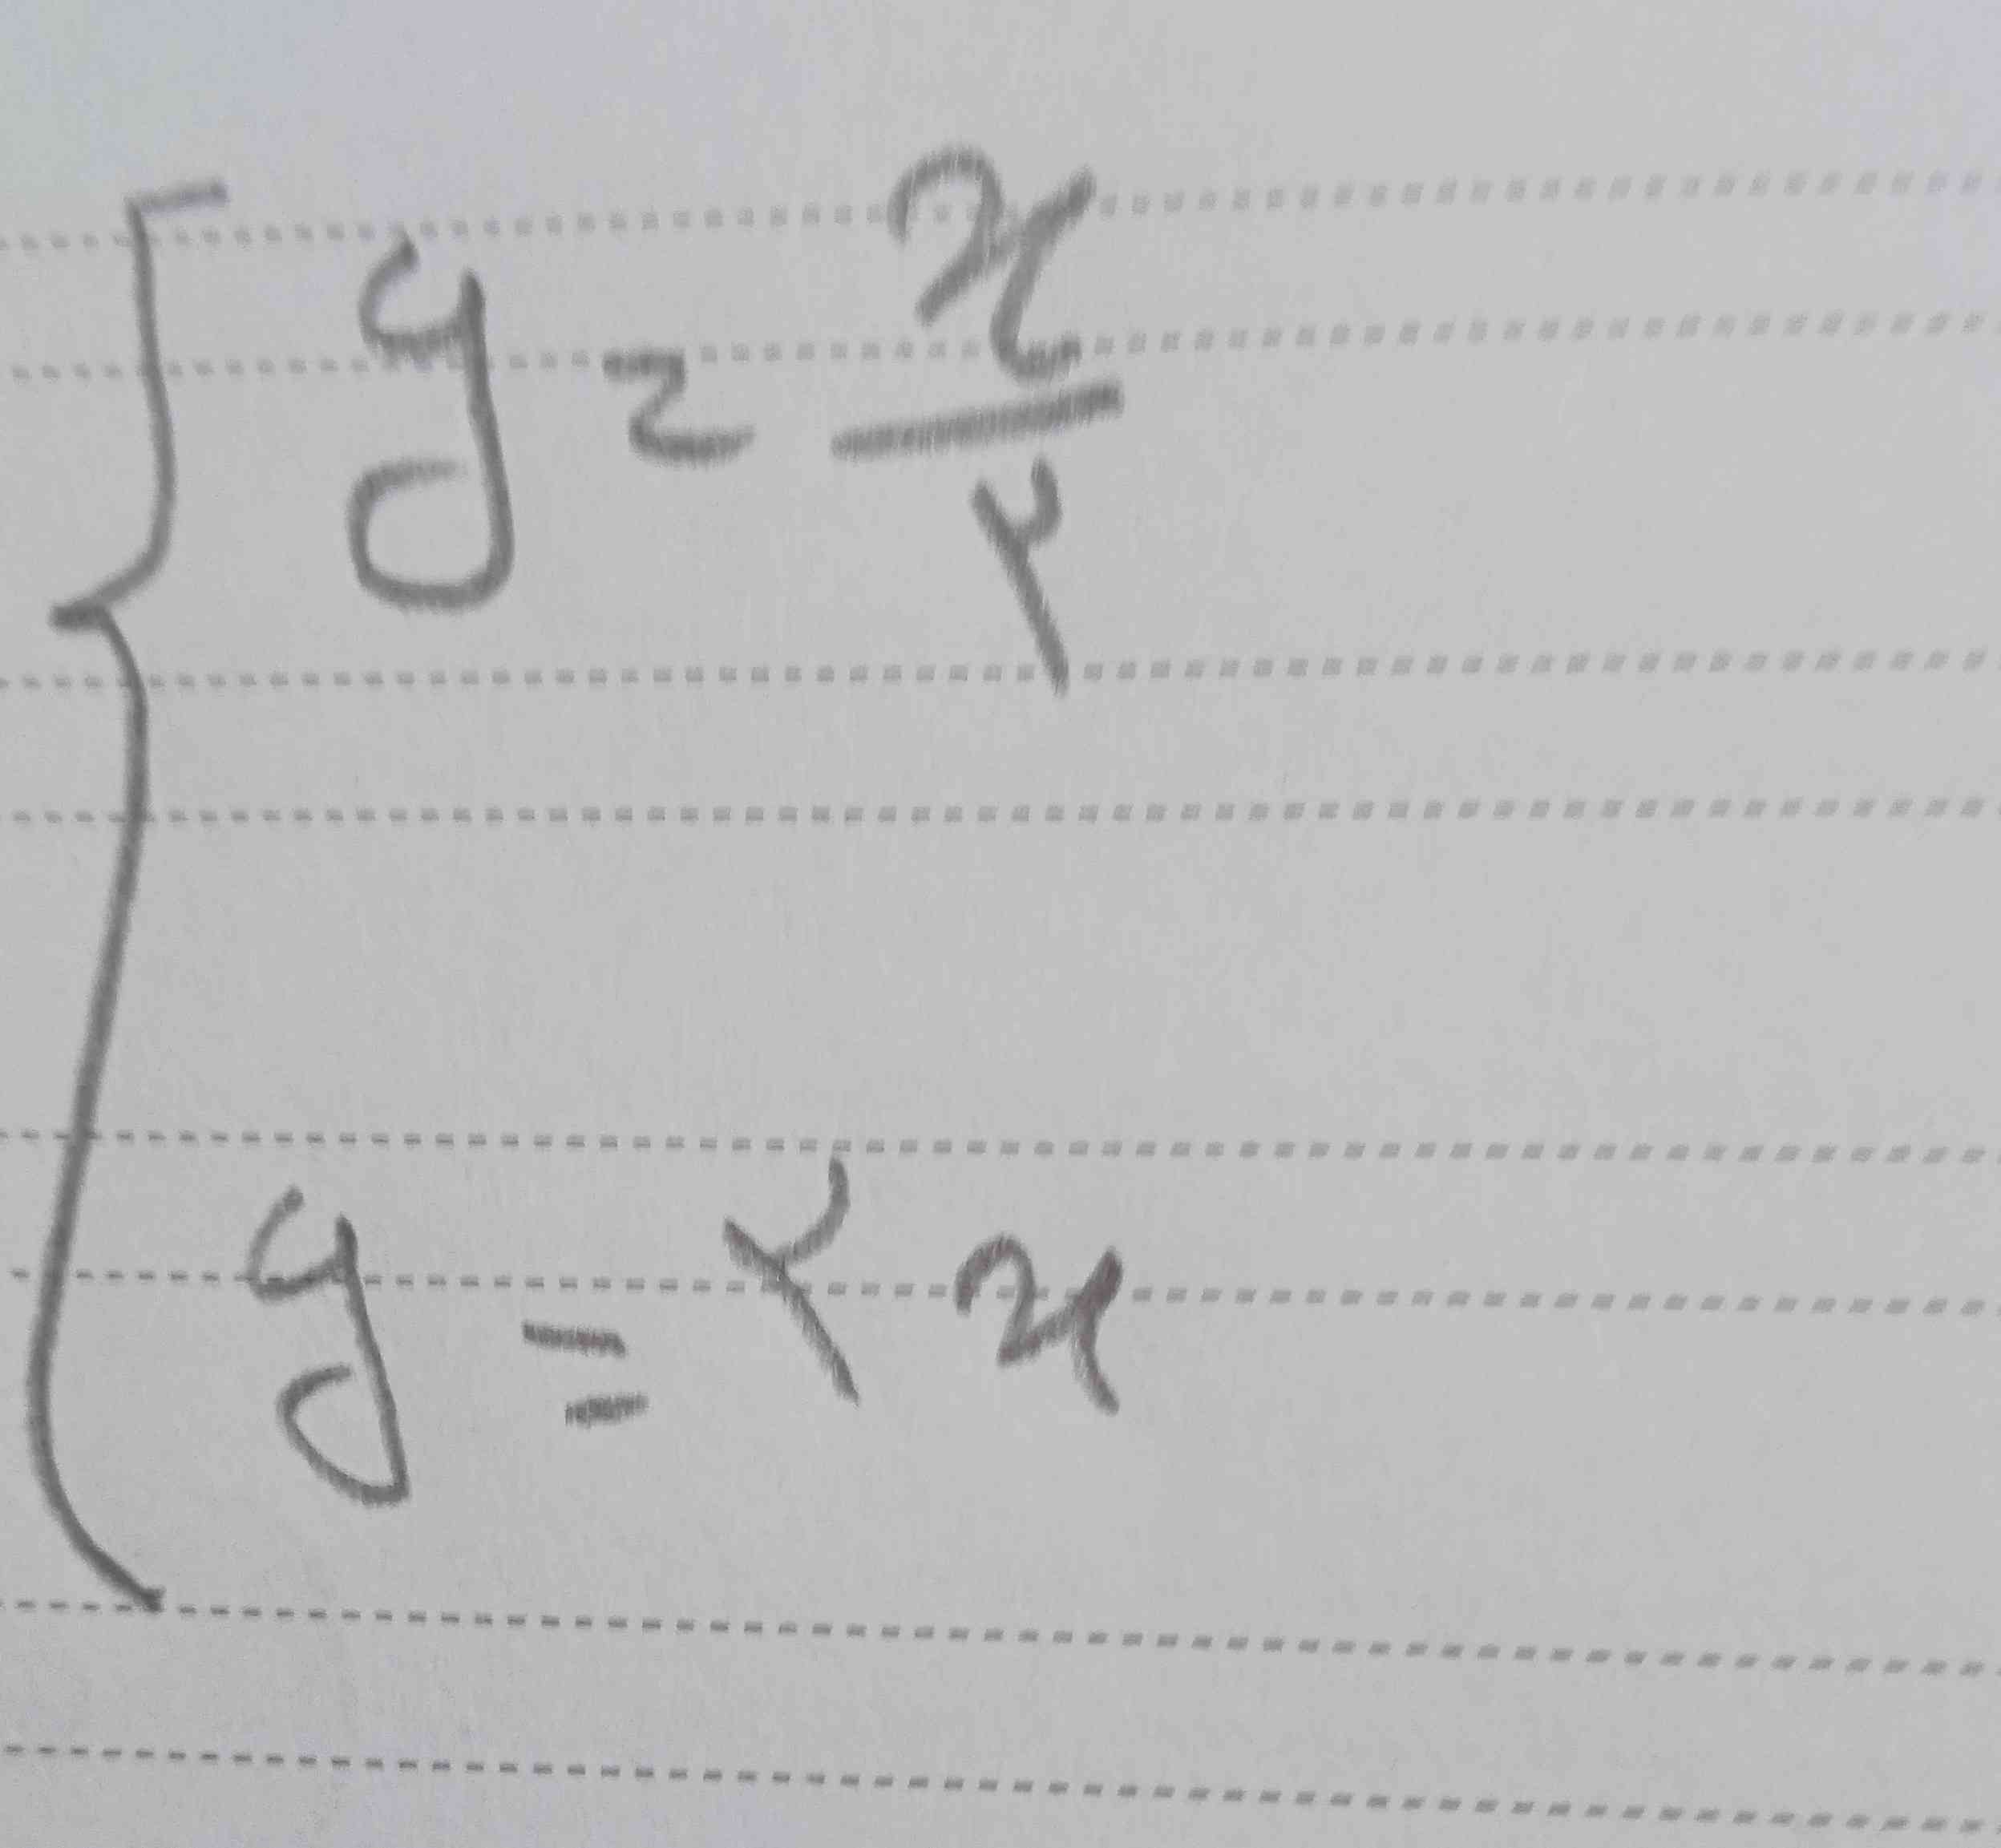 y = x/۲
y = ۲x